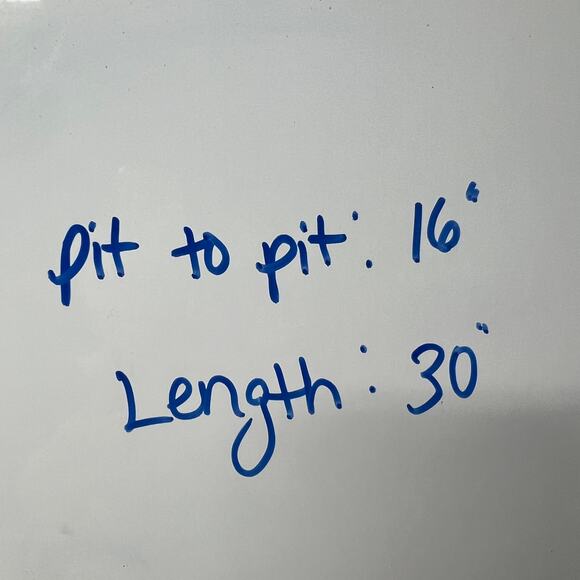 pit to pit: 16"
Length: 30"